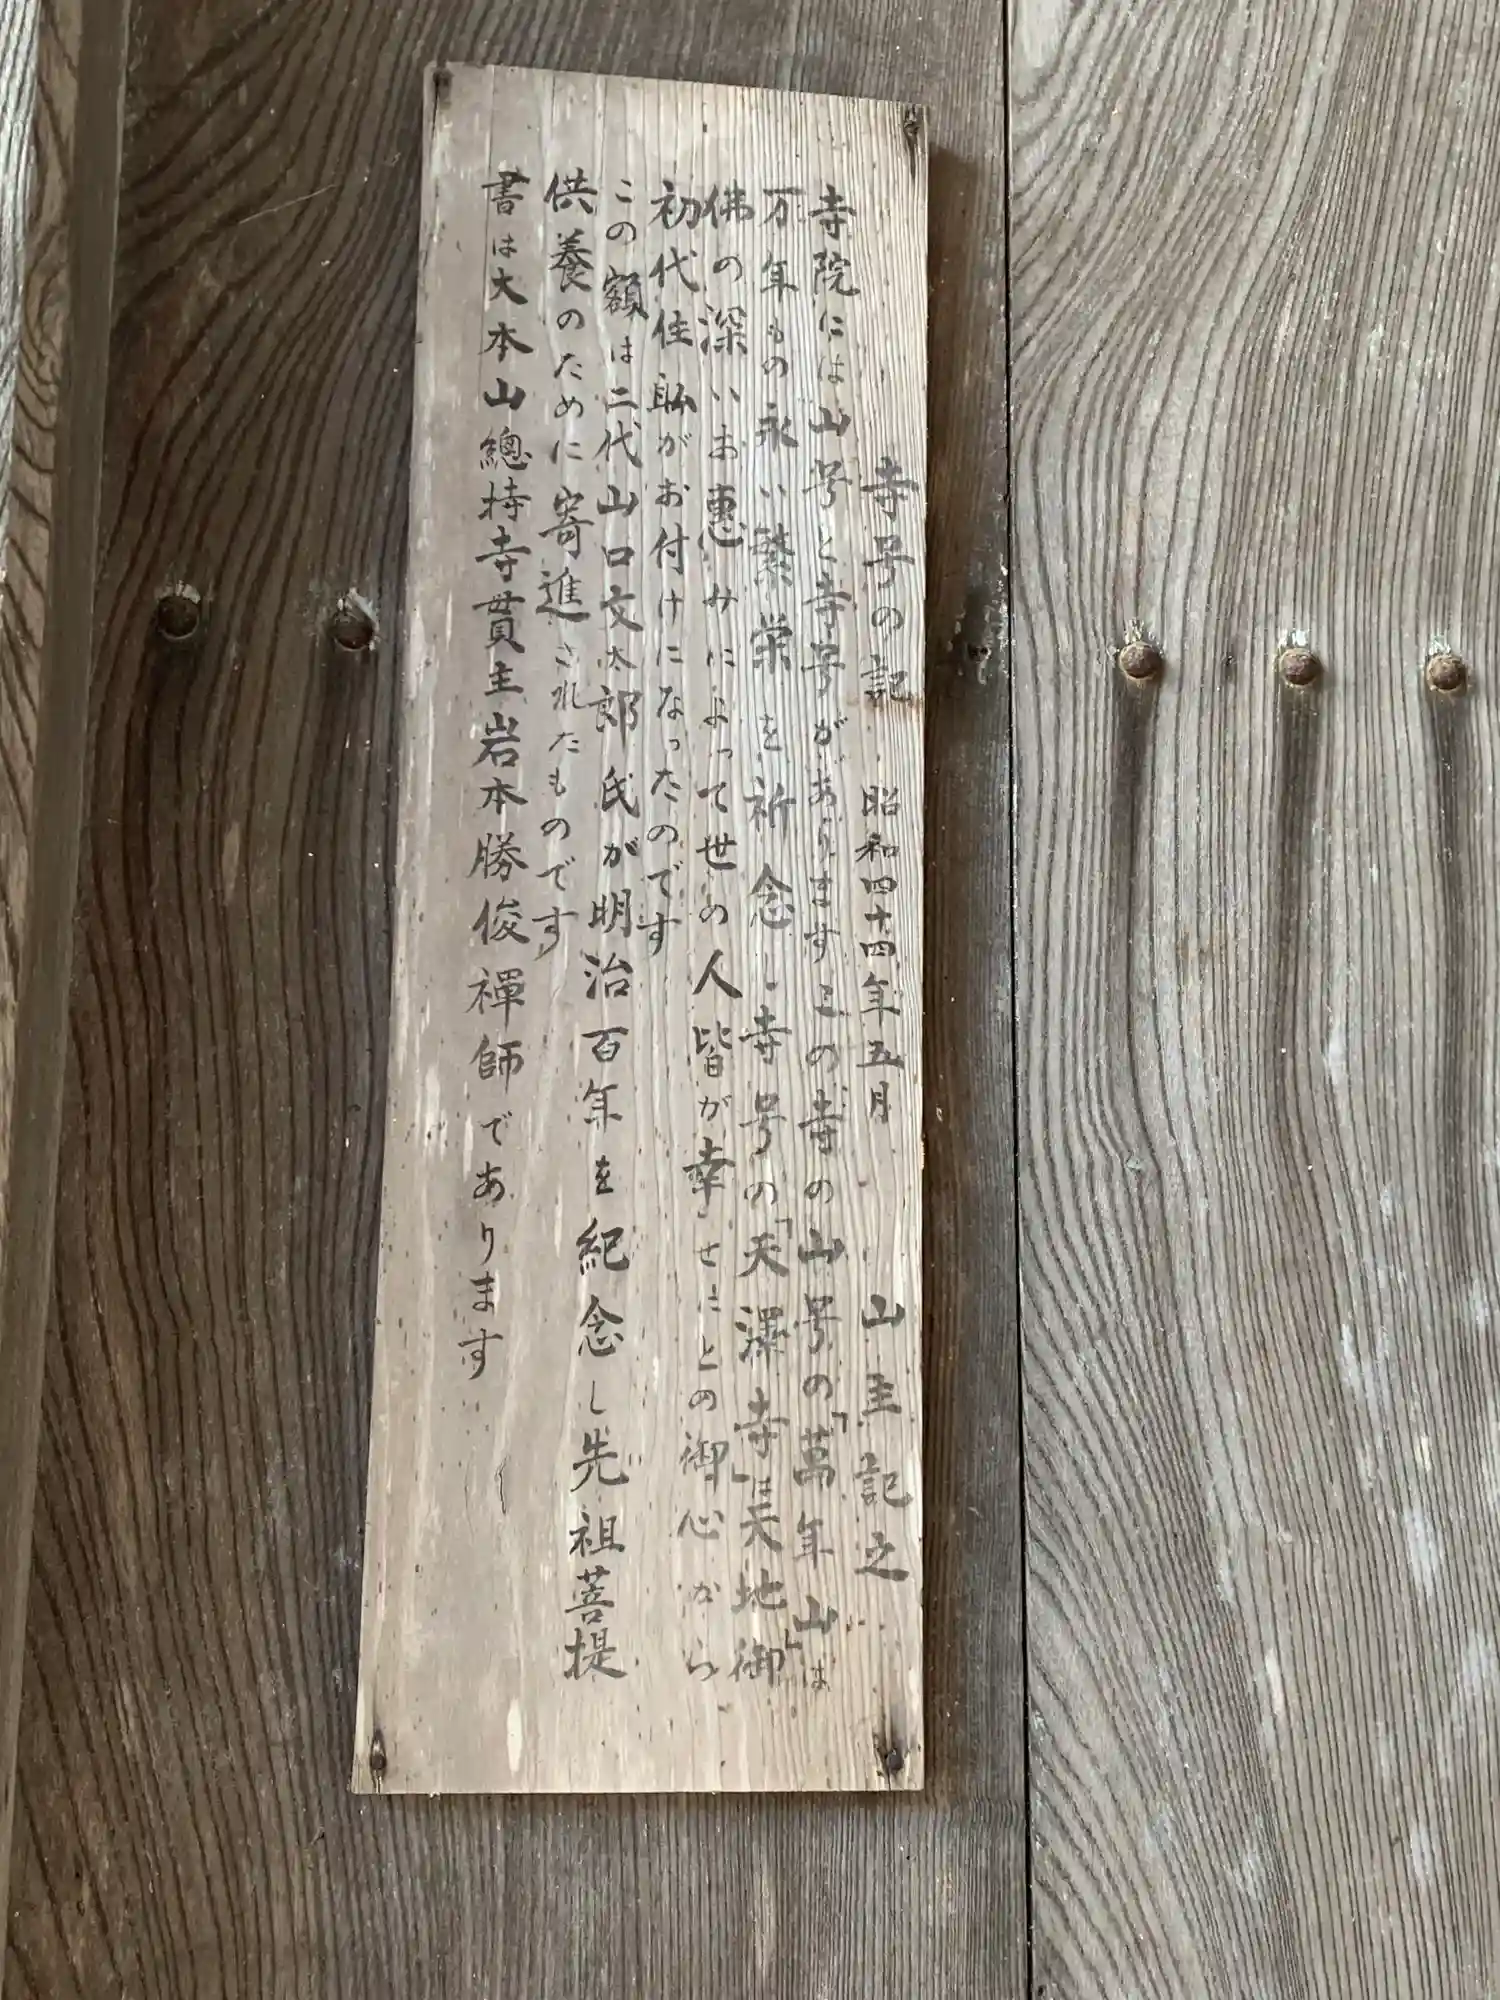 寺号の記 昭和四十四年五月 山主記之
寺院には山号と寺号がありますこの寺の山号の「萬年山」は
万年もの永い繁栄を祈念し寺号の「天澤寺」は天地御
佛の深いお恵みによって世の人皆が幸せにとの御心から
初代住職がお付けになったのです
この額は二代山口文太郎氏が明治百年を紀念し先祖菩提
供養のために寄進されたものです
書は大本山總持寺貫主岩本勝俊禅師であります